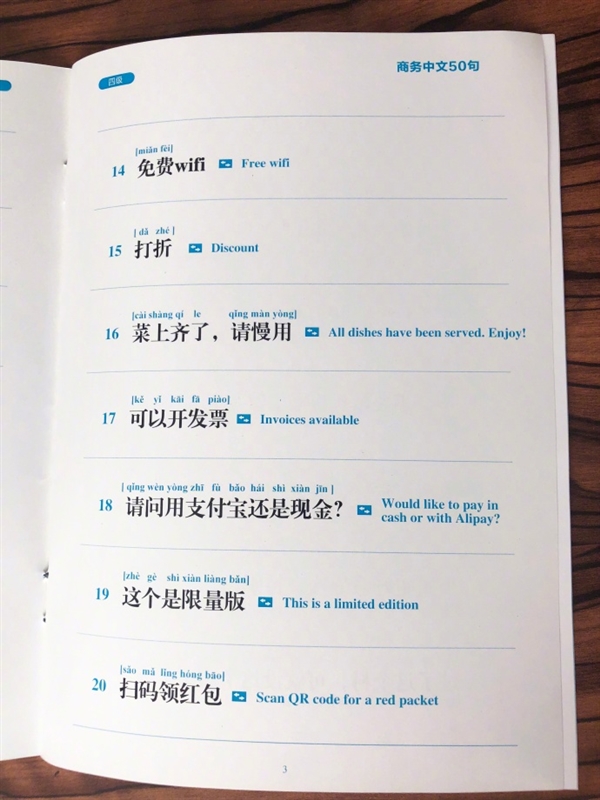 四级
商务中文50句
[miǎn fèi]
14 免费wifi Free wifi
[ dǎ zhé ]
15 打折 Discount
[cài shàng qí le qǐng màn yòng]
16 菜上齐了，请慢用 All dishes have been served. Enjoy!
[kě yǐ kāi fā piào]
17 可以开发票 Invoices available
[ qǐng wèn yòng zhī fù bǎo hái shì xiàn jīn ]
18 请问用支付宝还是现金？ Would like to pay in
cash or with Alipay?
[zhè gè shì xiàn liàng bǎn]
19 这个是限量版 This is a limited edition
[sǎo mǎ lǐng hóng bāo]
20 扫码领红包 Scan QR code for a red packet
3